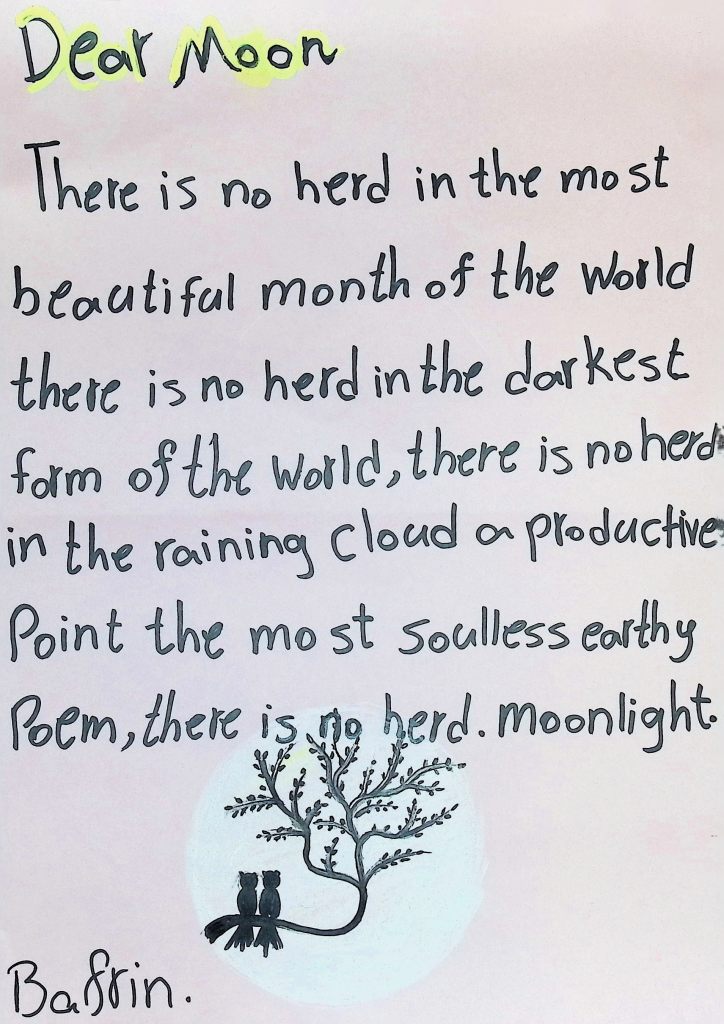 Dear Moon
There is no herd in the most
beautiful month of the world
there is no herd in the darkest
form of the world, there is no herd
in the raining cloud a productive
Point the most soulless earthy
Poem, there is no herd. moonlight.
Bafrin.